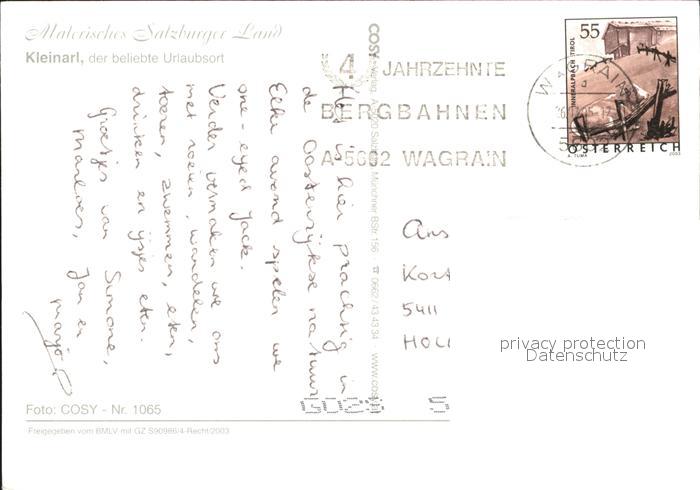 Malerisches Salzburger Land
Kleinarl, der beliebte Urlaubsort
4 JAHRZEHNTE
BERGBAHNEN
A-5602 WAGRAIN
55
INNERALPBACH TIROL
A. TUMA
2003
ÖSTERREICH
WAGRAIN
Het is hier prachtig in
de Oostenrijkse natuur
Elke avond spelen we
one-eyed Jack.
Verder vermaken we ons
met roeien, wandelen,
toeren, zwemmen, eten,
drinken en ijsjes eten.
Groetjes van Simone,
Marloes, Jan en
Marjo
COSY-Verlag A-5020 Salzburg Münchner BStr 156 ☎ 0662/43 43 34 www.cosy.at
Ans
5411
privacy protection
Datenschutz
Foto: COSY - Nr. 1065
Freigegeben vom BMLV mit GZ S90986/4-Recht/2003